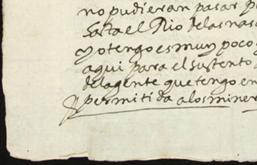 no pudieran pasar p
hasta el Rio de las nas
yo tengo es muy poco y
aqui para el sustento d
de la gente que tengo en
permitida a los miner